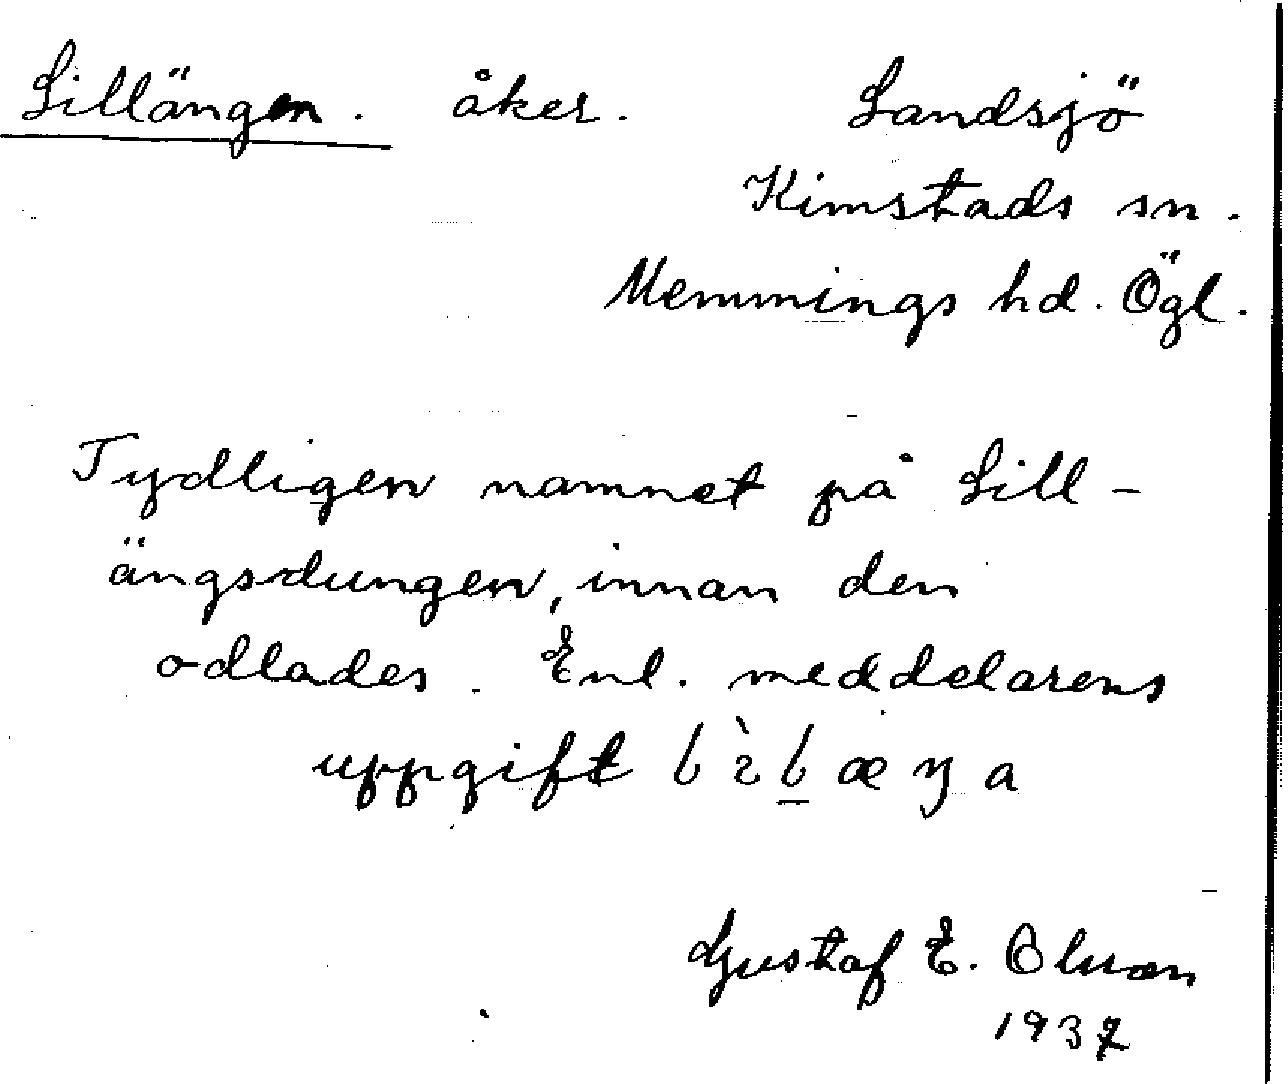 Lillängen. åker. Landsjö
Kimstads sn.
Memmings hd. Ögl.
Tydligen namnet på Lill-
ängsdungen, innan den
odlades. Enl. meddelarens
uppgift
Gustaf E. Olsson
1937